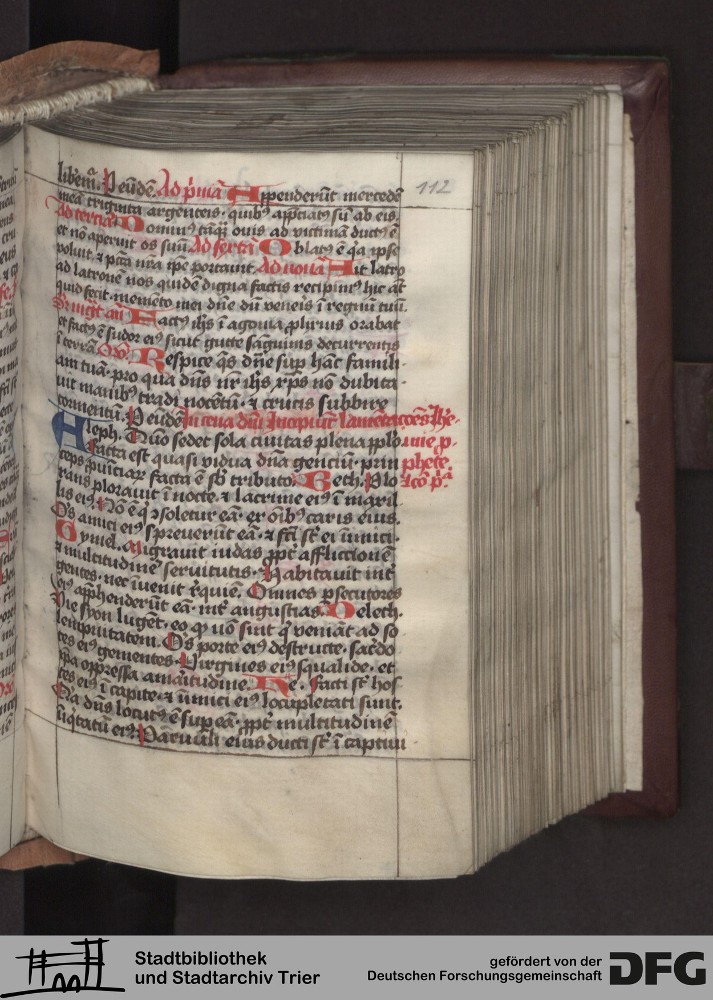 112
libem̄. P eūdē. Ad p̄mā A ppenderūt mercedē
meā triginta argenteis · quibꝰ app̄ciatꝰ sū ab eis.
Ad terciā D ominꝰ tāqȝ ouis ad victimā ductꝰ ē
et nō aperuit os suū. Ad sextā O blatꝰ ē q̄a ipse
voluit · ⁊ pcc̄a nr̄a ip̄e portauit. Ad nonā A it latro
ad latronē nos quidē digna factis recipimꝰ hic aūt
quid fecit · memēto mei dn̄e dū veneris ī regnū tuū.
Sr̄ mgt̄ an̄ F actꝰ ih̄s ī agonia ꝓlixius orabat
et factꝰ ē sudor eiꝰ sicut gutte sāguinis decurrentis
ī terrā. Or̄o. R espice q̄s dn̄e sup hāc famili-
am tuā · pro qua dn̄s nr̄ ih̄s xp̄s nō dubita-
uit manibꝰ tradi nocētū · ⁊ crucis subbire
tormētū. P eūdē In cena dn̄i Incipiūt lamētac̄oēs Ihe-
A leph. Quō sedet sola ciuitas plena pplo. mie p-
Facta est quasi vidua dn̄a genciū · prin phete.
ceps ꝓuīciaꝝ facta ē sb̄ tributo. B eth. Plo lc̄o p̄a
rans plorauit ī nocte · ⁊ lacrime eiꝰ ī maxil
lis eiꝰ. Nō ē q̄ ↄsoletur eā · ex oībꝰ caris eius.
Oēs amici eiꝰ spreuerūt eā · ⁊ fc̄i sūt ei inimici.
G ymel. Migrauit iudas ꝓpt̄ affliccionē
⁊ multitudinē seruitutis · Habitauit int̄
gentes · nec īuenit requiē. Omnes ꝑsecutores
eiꝰ app̄henderūt eā · int̄ angustias. D eleth.
Vie syon lugēt · eo ꝙ nō sint q̄ veniāt ad so
lempnitatem. Oēs porte eiꝰ destructe · sac̄do
tes eiꝰ gementes · Virgines eiꝰ squalide · et
ip̄a oppressa amaritudine. H e. Facti sūt hos
tes eiꝰ ī capite · ⁊ inimici eiꝰ locupletati sunt.
Q̄a dn̄s locutꝰ ē sup eā · ꝓpt̄ multitudinē
īiq̄tatū eiꝰ Paruuli eius ducti sūt ī captiui
Stadtbibliothek
und Stadtarchiv Trier
gefördert von der
Deutschen Forschungsgemeinschaft
DFG